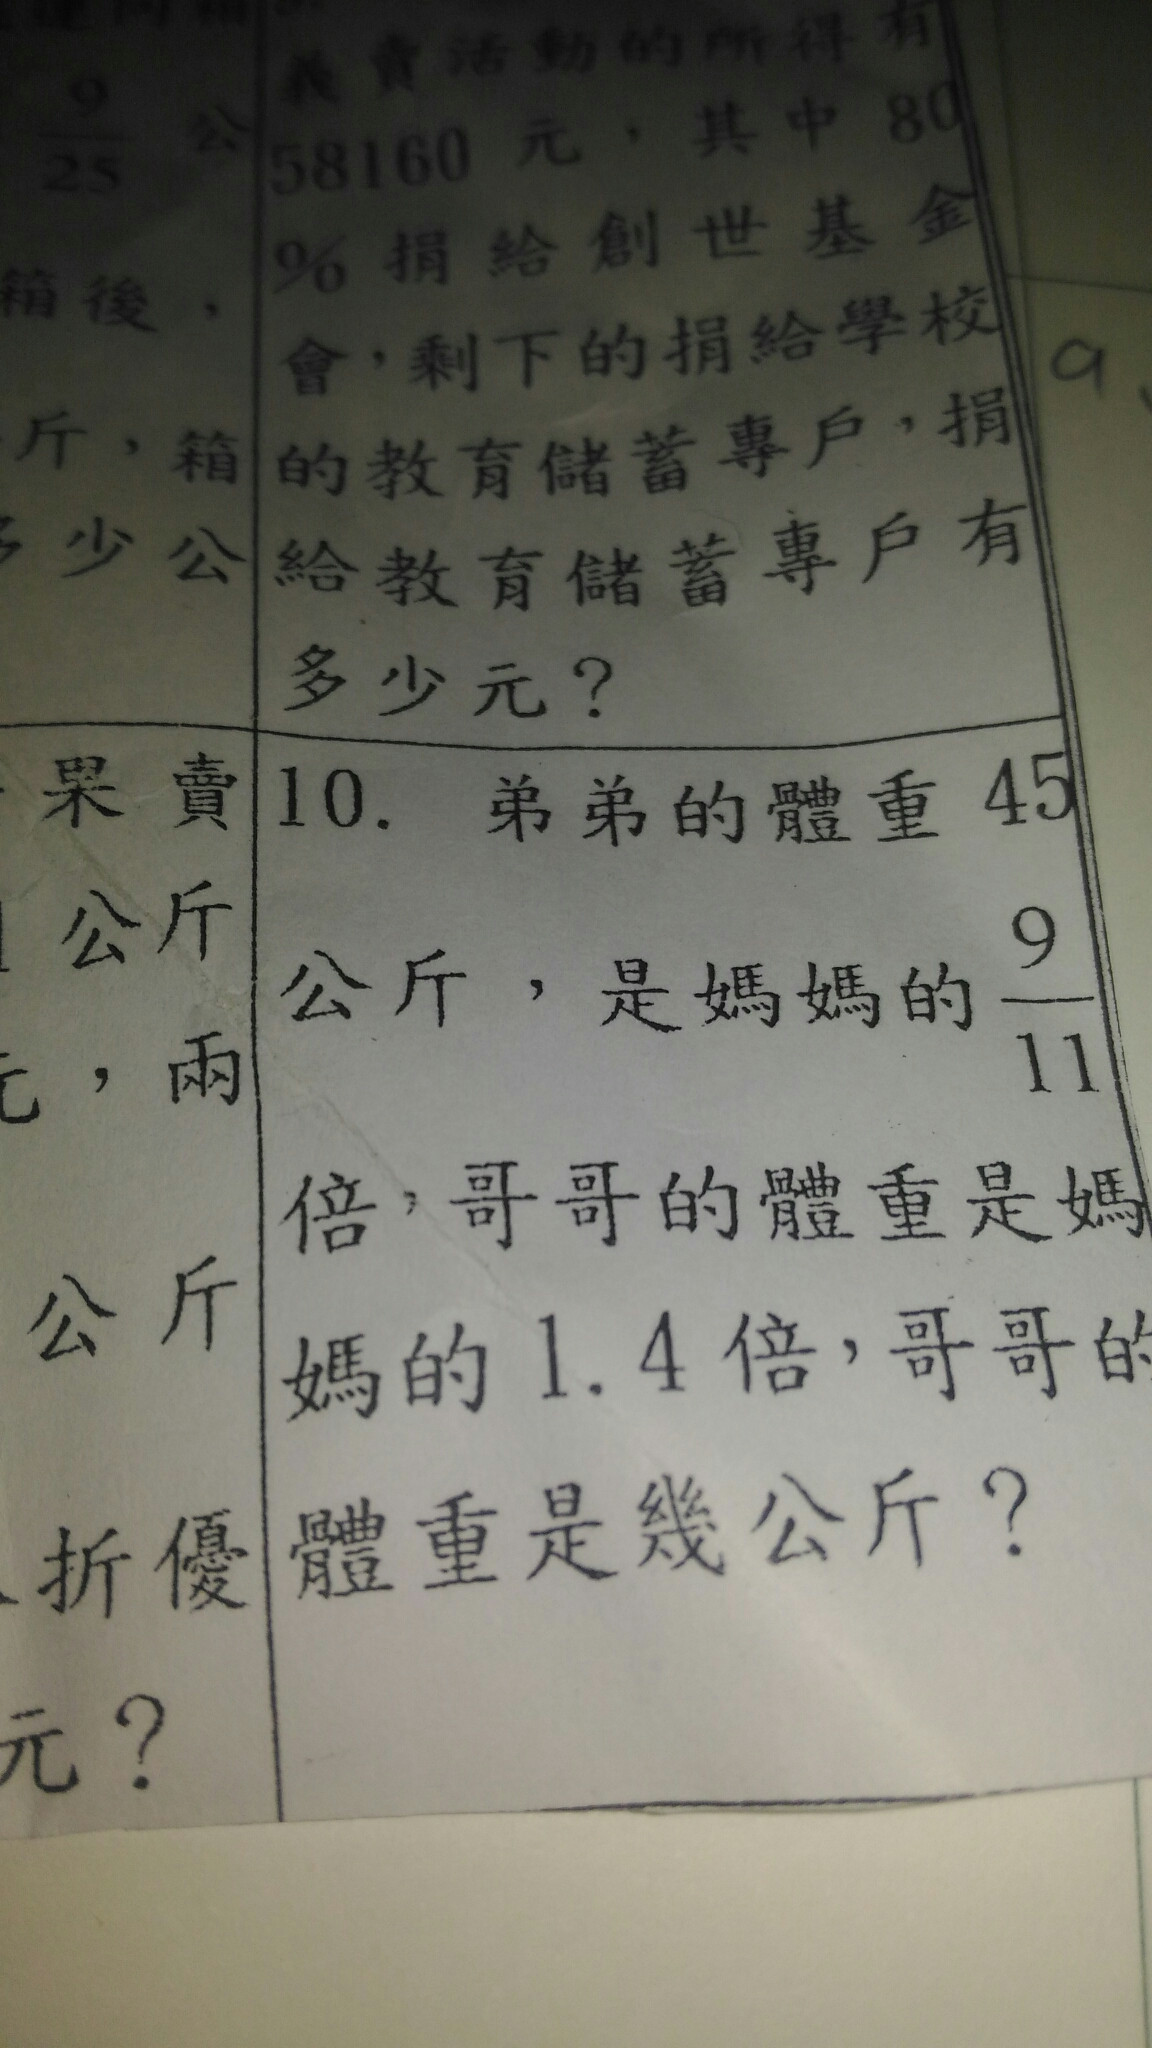 9
25
公
箱後，
斤，箱
少公
義賣活動的所得有
58160 元，其中 80
% 捐給創世基金
會，剩下的捐給學校
的教育儲蓄專戶，捐
給教育儲蓄專戶有
多少元？
果賣
公斤
元，兩
公斤
折優
元？
10. 弟弟的體重 45
公斤，是媽媽的 9/11
倍，哥哥的體重是媽
媽的 1.4 倍，哥哥的
體重是幾公斤？
9